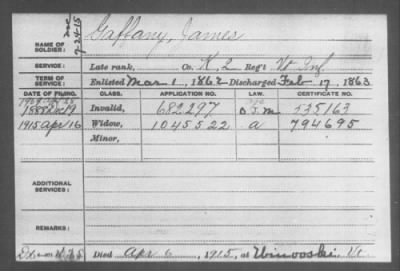 Gaffany, James
NAME OF SOLDIER:
7-24-15
SERVICE: Late rank, Co. K, 2 Reg't Vt Inf
TERM OF SERVICE: Enlisted Mar 1, 1862 Discharged Feb 17, 1863
DATE OF FILING. CLASS. APPLICATION NO. LAW. CERTIFICATE NO.
1888 Dec 19 Invalid, 682297 535163
1915 Apr 16 Widow, 1045522 a 794695
Minor,
ADDITIONAL SERVICES:
REMARKS:
Died Apr 6, 1915, at Winooski, Vt